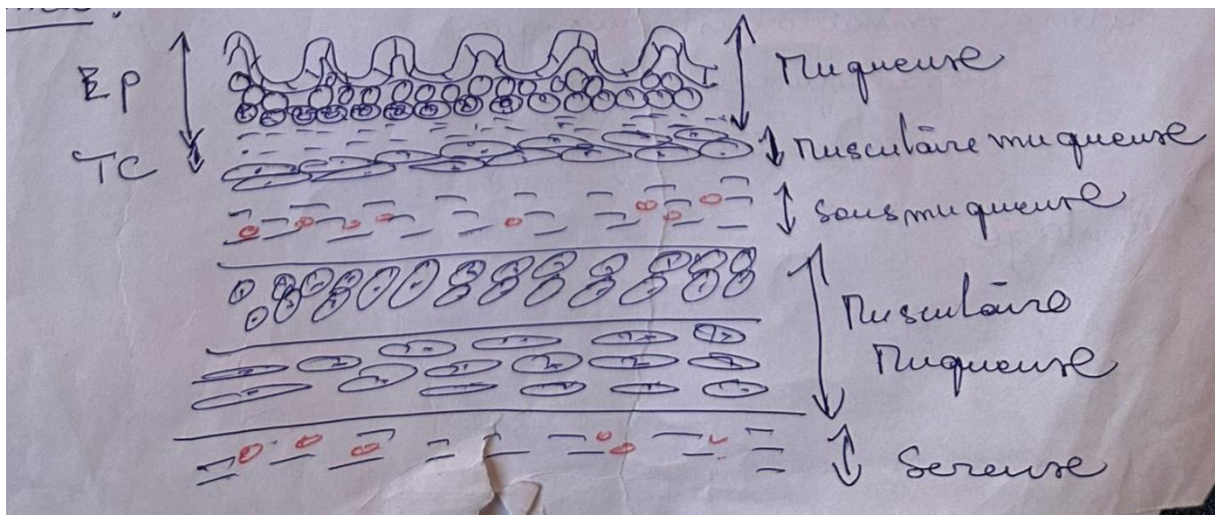 Ep
Muqueuse
TC
Musculaire muqueuse
Sous muqueuse
Musculaire
Muqueuse
Sereuse